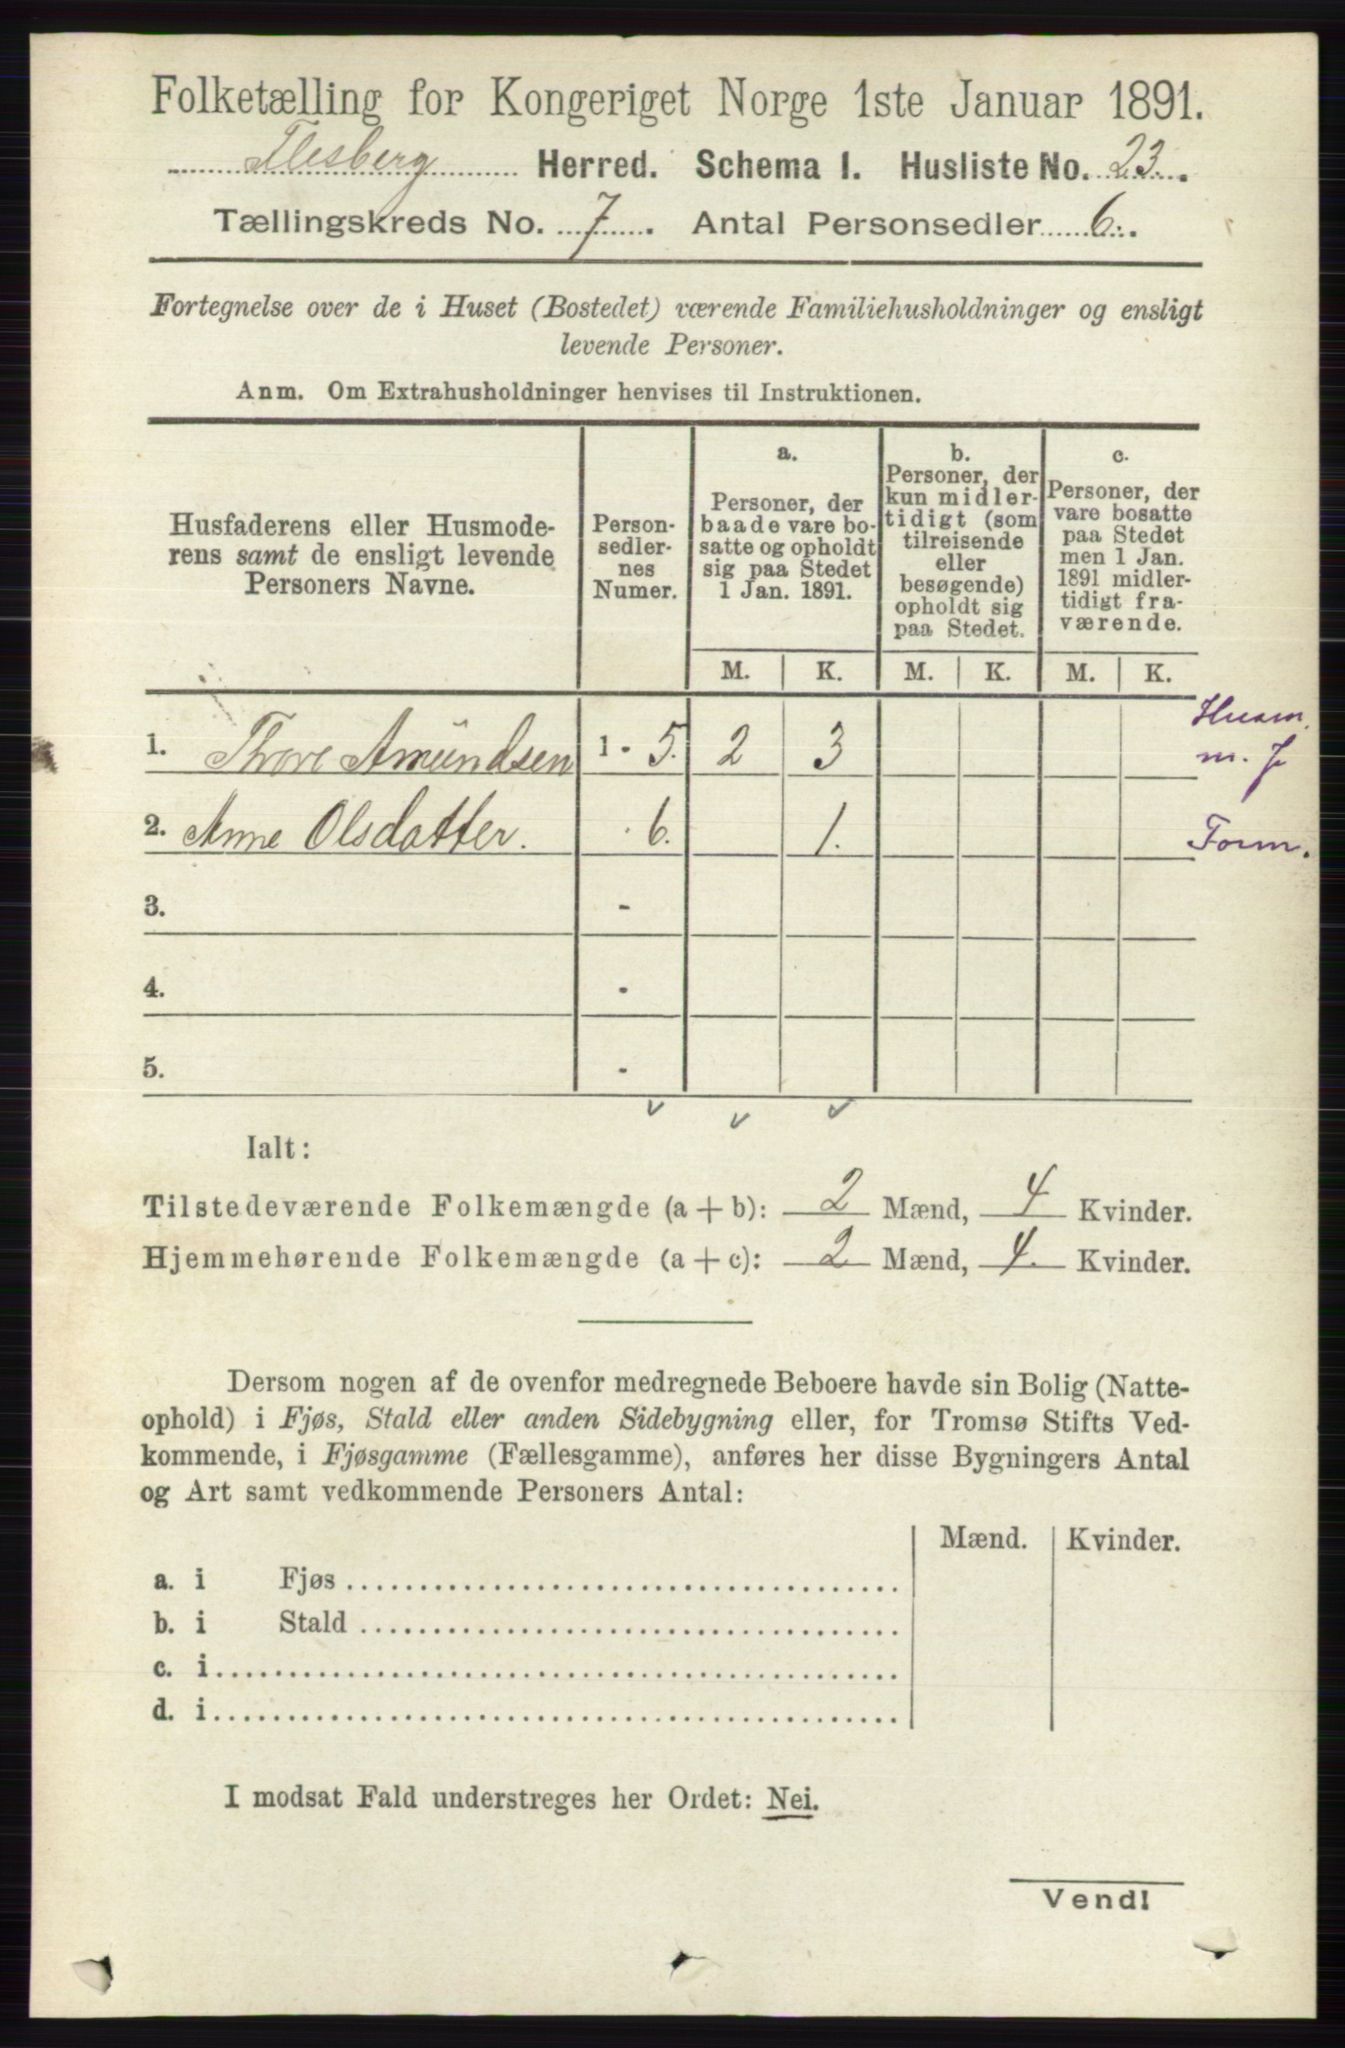 Folketælling for Kongeriget Norge 1ste Januar 1891.
Flesberg Herred. Schema I. Husliste No. 23.
Tællingskreds No. 7. Antal Personsedler 6.
Fortegnelse over de i Huset (Bostedet) værende Familiehusholdninger og ensligt
levende Personer.
Anm. Om Extrahusholdninger henvises til Instruktionen.
Husfaderens eller Husmode-
rens samt de ensligt levende
Personers Navne.
Person-
sedler-
nes
Numer.
a.
Personer, der
baade vare bo-
satte og opholdt
sig paa Stedet
1 Jan. 1891.
b.
Personer, der
kun midler-
tidigt (som
tilreisende
eller
besøgende)
opholdt sig
paa Stedet.
c.
Personer, der
vare bosatte
paa Stedet
men 1 Jan.
1891 midler-
tidigt fra-
værende.
M. K. M. K. M. K.
1. Thore Amundsen 1 - 5. 2 3 Husm. m. J
2. Anne Olsdatter. 6. 1. Form.
3. -
4. -
5. -
Ialt:
Tilstedeværende Folkemængde (a + b): 2 Mænd, 4 Kvinder.
Hjemmehørende Folkemængde (a + c): 2 Mænd, 4. Kvinder.
Dersom nogen af de ovenfor medregnede Beboere havde sin Bolig (Natte-
ophold) i Fjøs, Stald eller anden Sidebygning eller, for Tromsø Stifts Ved-
kommende, i Fjøsgamme (Fællesgamme), anføres her disse Bygningers Antal
og Art samt vedkommende Personers Antal:
Mænd. Kvinder.
a. i Fjøs
b. i Stald
c. i
d. i
I modsat Fald understreges her Ordet: Nei.
Vend!